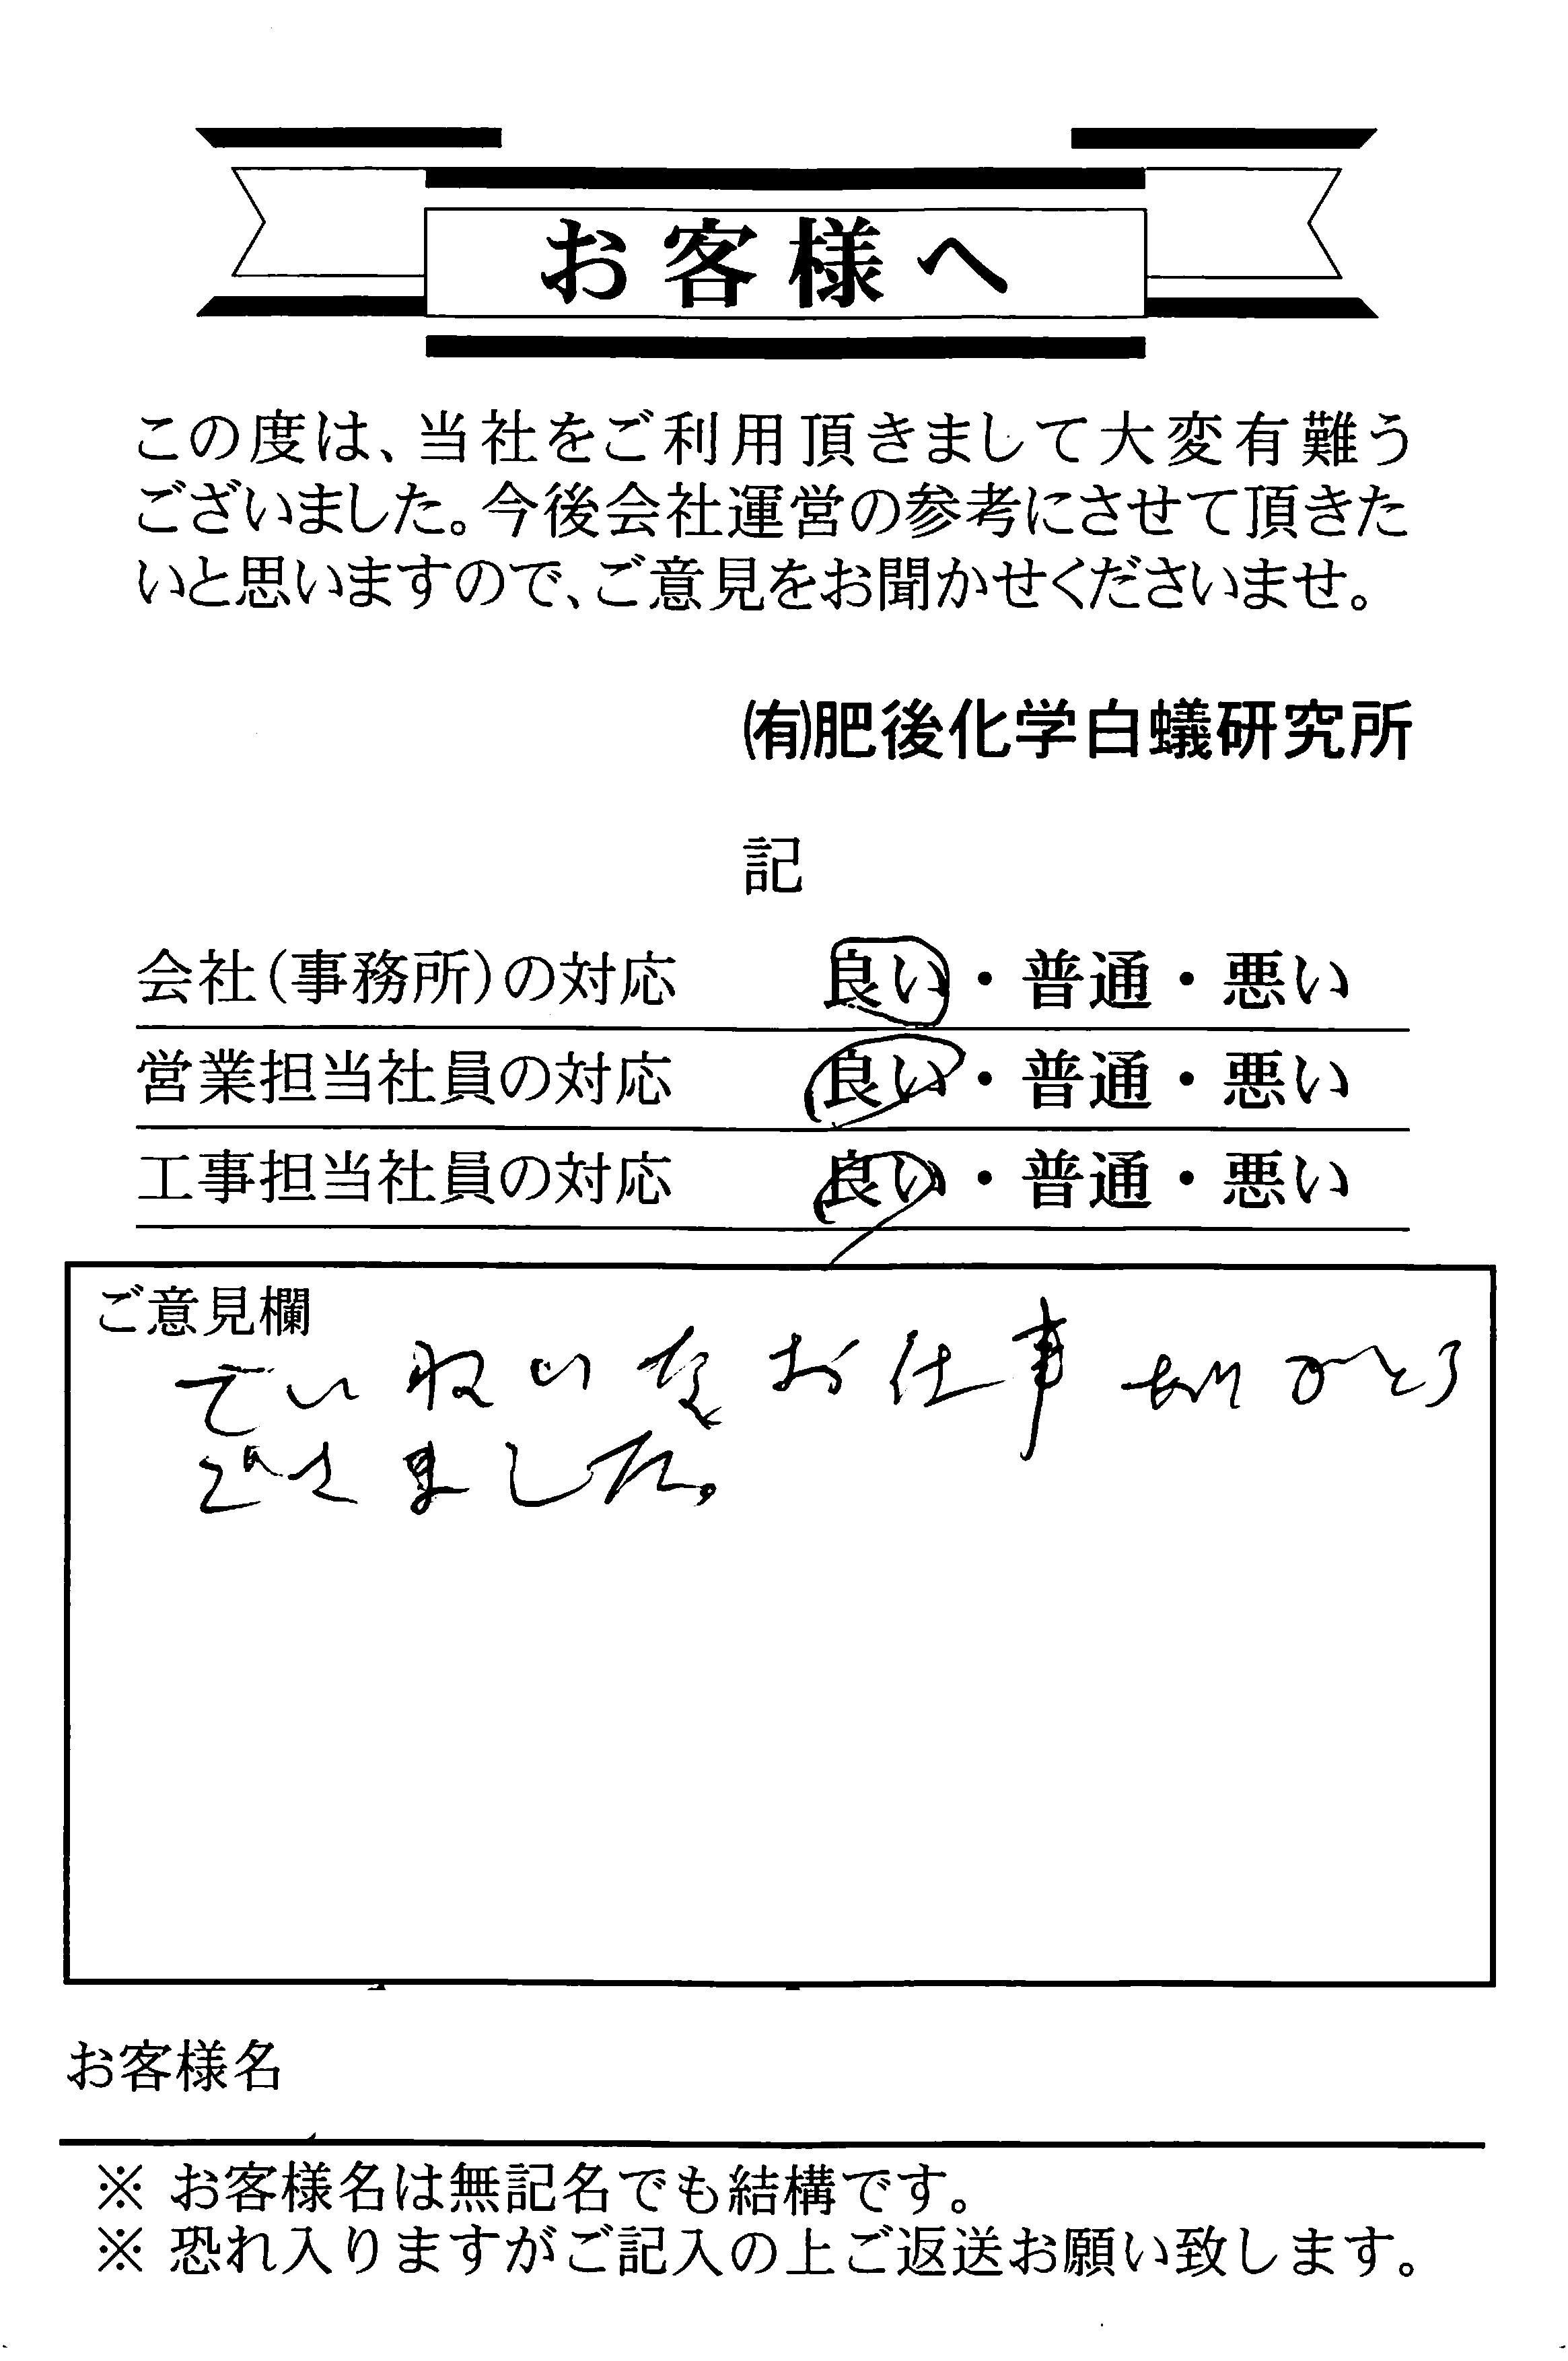 お客様へ
この度は、当社をご利用頂きまして大変有難う
ございました。今後会社運営の参考にさせて頂きた
いと思いますので、ご意見をお聞かせくださいませ。
㈲肥後化学白蟻研究所
記
会社(事務所)の対応 良い・普通・悪い
営業担当社員の対応 良い・普通・悪い
工事担当社員の対応 良い・普通・悪い
ご意見欄
ていねいなお仕事ありがとう
ござました。
お客様名
※ お客様名は無記名でも結構です。
※ 恐れ入りますがご記入の上ご返送お願い致します。